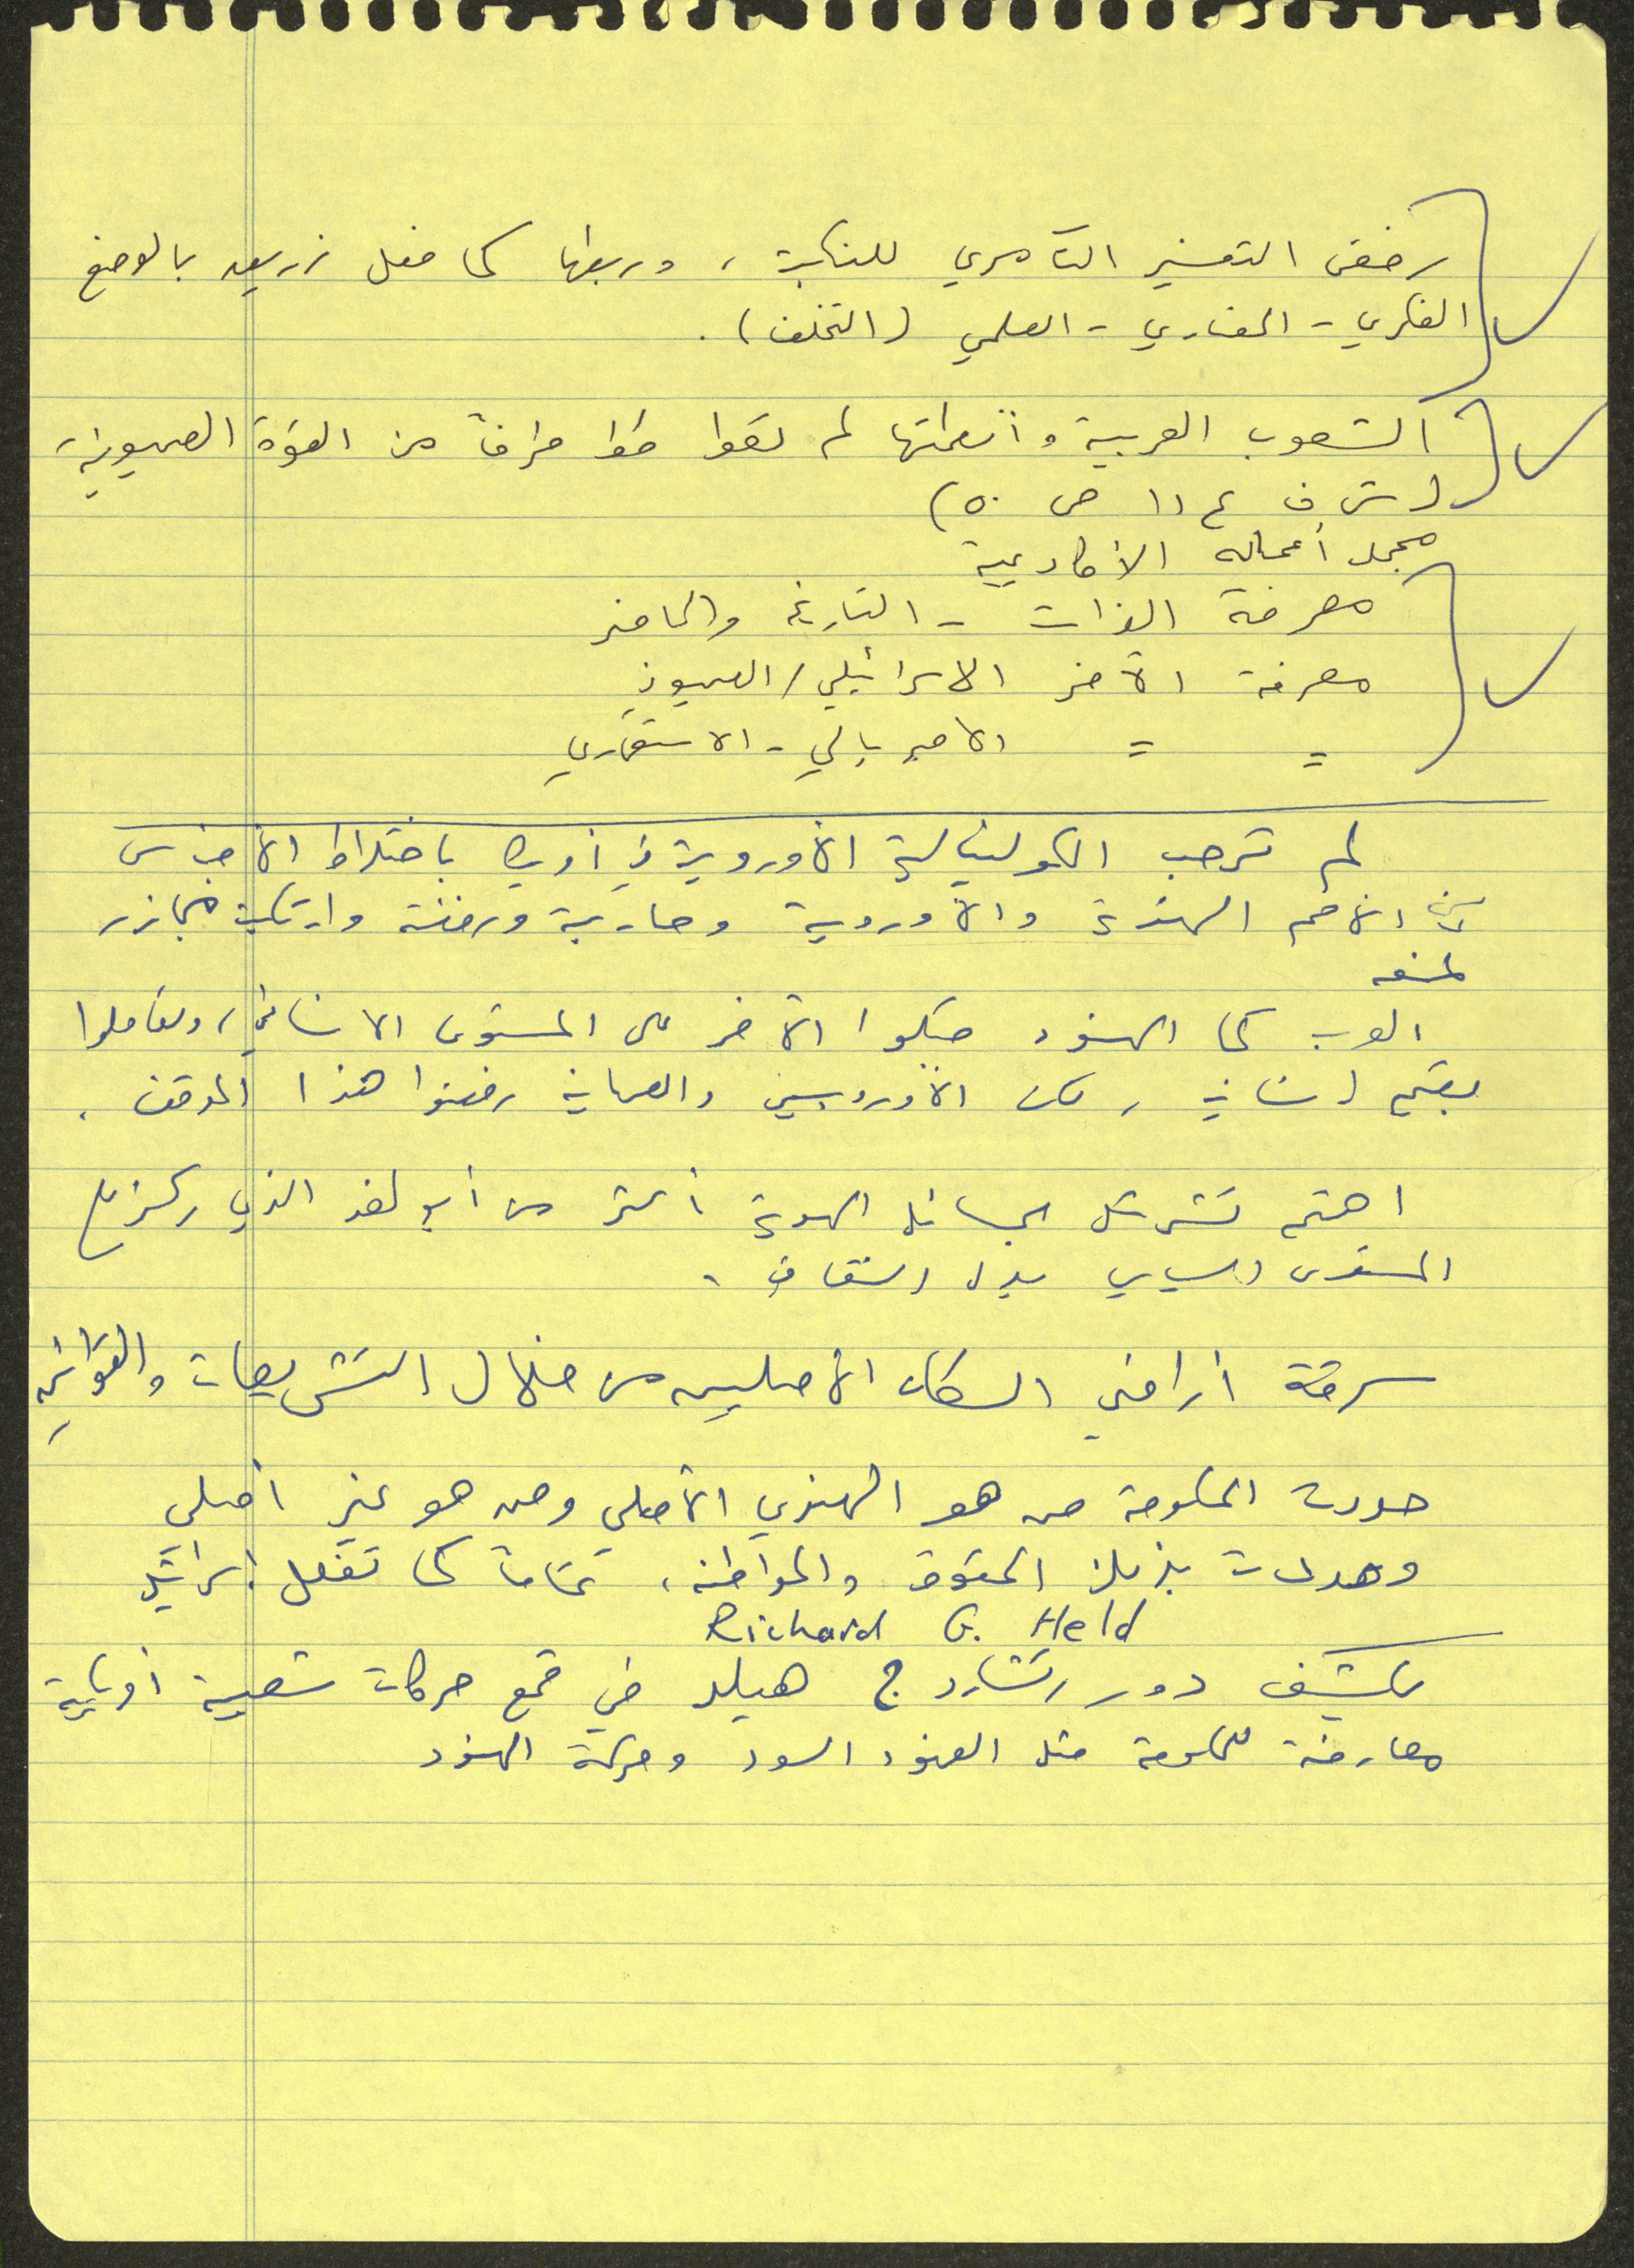 رفض التفسير التآمري للنكبة، وربطها كما فعل زريق بالوضع
الفكري - الحضاري - العلمي (التخلف).
الشعوب العربية وأنظمتها لم يقفوا خوفاً من القوة الصهيونية
(ش ف ع ١١ ص ٥٠)
مجمل أعماله الأكاديمية
معرفة الذات - التاريخ والحاضر
معرفة الآخر الاسرائيلي / الصهيوني
= = الامبريالي - الاستعماري
لم ترحب الكولنيالية الأوروبية في أمريكا باختلاط الأجناس
بين الأمم الهندية والأوروبية وحاربته ورفضته وارتكبت مجازر
لمنعه
العرب كما الهنود قبلوا الآخر على المستوى الانساني، وتعاملوا
بقيم انسانية، لكن الأوروبيين والصهاينة رفضوا هذا الموقف.
اهتم تشرتشل بمسائل الهوية أكثر من أبو لغد الذي ركز على
المستوى السياسي بدل الثقافي.
سرقة أراضي السكان الأصليين من خلال التشريعات والقوانين
حددت الحكومة من هو الهندي الأصلي ومن هو غير أصلي
وحددت بذلك الحقوق والمواطنة، تماماً كما تفعل إسرائيل
Richard G. Held
يكشف دور رتشارد ج هيلد في قمع حركات شعبية أمريكية
معارضة للحكومة مثل الفهود السود وحركة الهنود